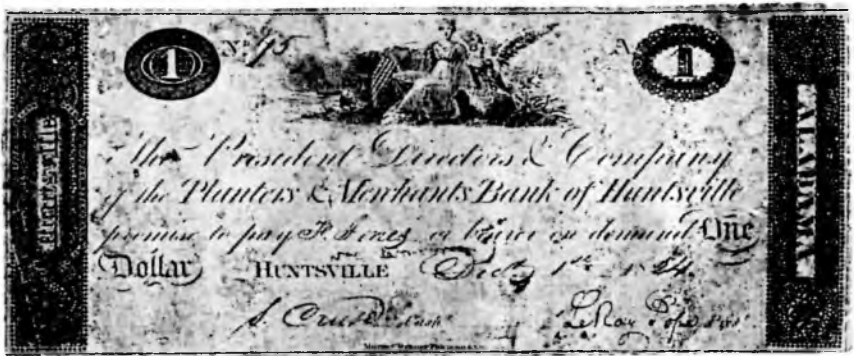 Huntsville
1 No 75 A 1
The President Directors & Company
of the Planters & Merchants Bank of Huntsville
promise to pay or bearer on demand One
Dollar HUNTSVILLE 1st
S. Cruse Cash. LeRoy Pope Prest.
ALABAMA